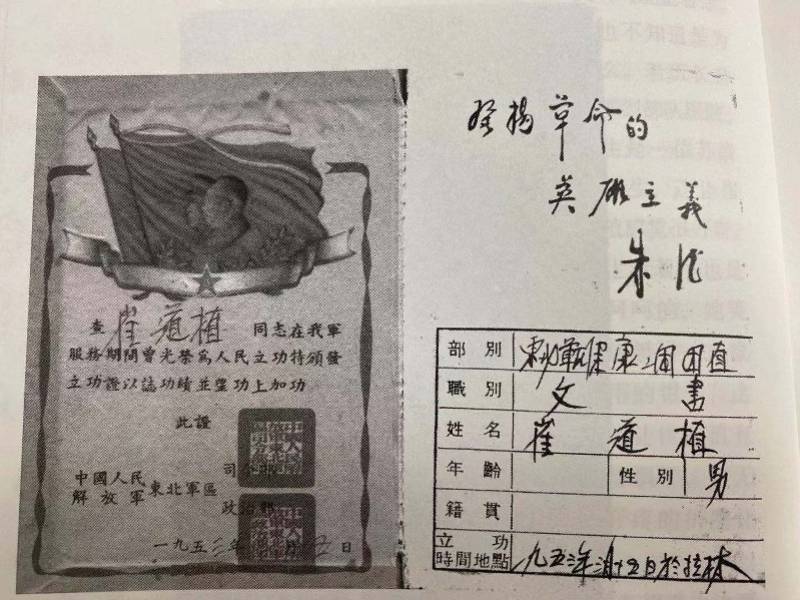 查 崔道植 同志在我軍
服務期間曾光榮爲人民立功特頒發
立功證以誌功績並望功上加功
此證
中國人民
解放軍
東北軍區
司令部
政治部
一九五三年
五日
發揚革命的
英雄主義
朱德
部別
職別 文書
姓名 崔道植
年齡 性別 男
籍貫
立功
時間地點 一九五三年 月十五日於拉林